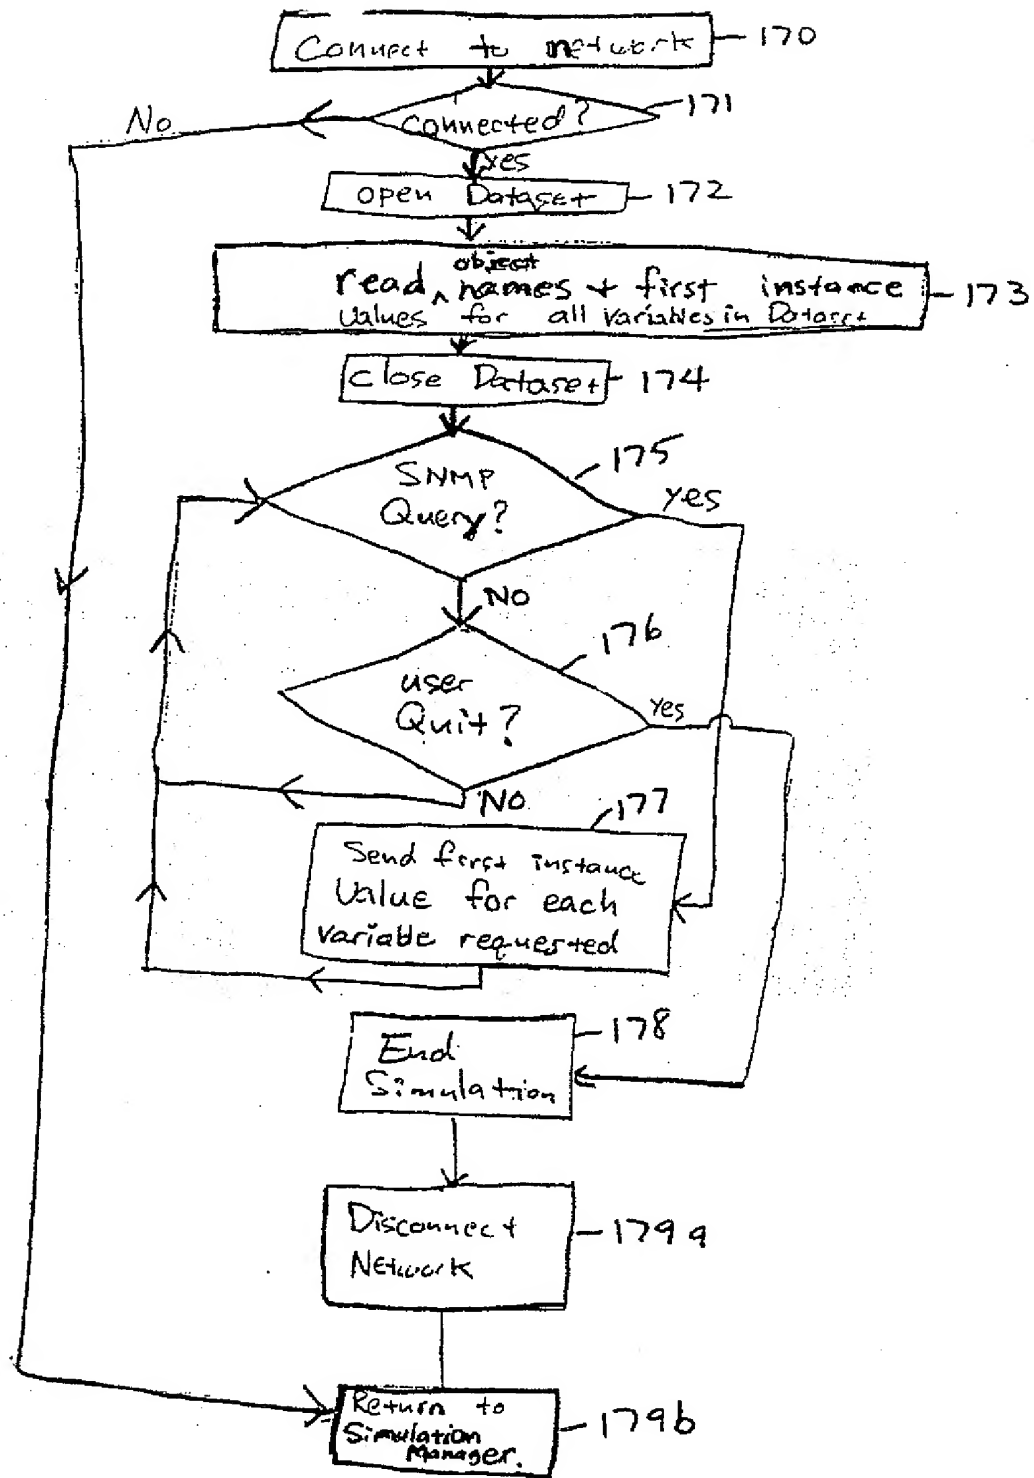 Connect to network 170
connected? 171
No
Yes
open Dataset 172
object
read ^ names + first instance
Values for all variables in Dataset 173
Close Dataset 174
SNMP
Query? 175
Yes
NO
user
Quit? 176
Yes
NO
177
Send first instance
Value for each
variable requested
End
Simulation 178
Disconnect
Network 179a
Return to
Simulation
Manager. 179b